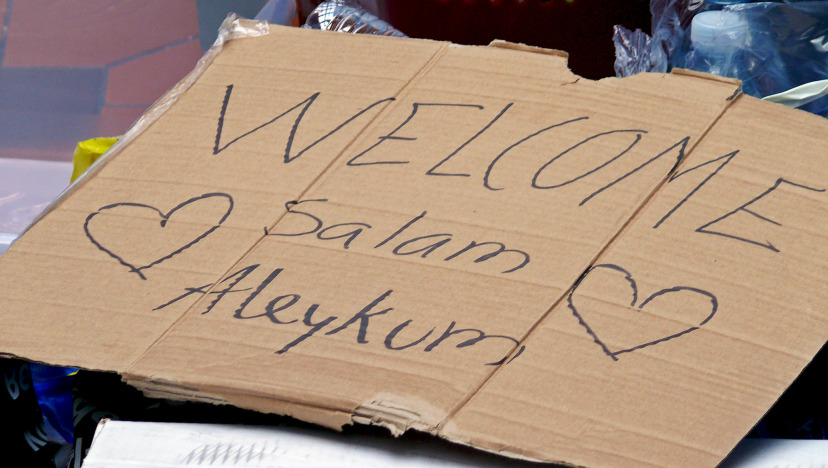 WELCOME
Salam
Aleykum